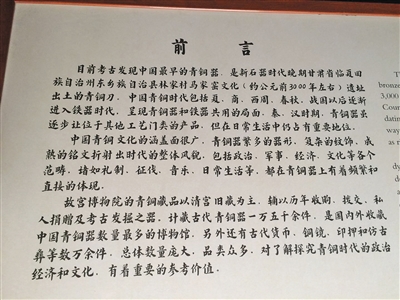 前言
目前考古发现中国最早的青铜器，是新石器时代晚期甘肃省临夏回
族自治州东乡族自治县林家村马家窑文化（约公元前3000年左右）遗址
出土的青铜刀。中国青铜时代包括夏、商、西周、春秋，战国以后逐渐
进入铁器时代，呈现青铜器和铁器共用的局面。秦、汉时期，青铜器虽
逐步让位于其他工艺门类的产品，但在日常生活中仍占有重要地位。
中国青铜文化的涵盖面很广，青铜器繁多的器形，复杂的纹饰，成
熟的铭文折射出时代的整体风貌，包括政治、军事、经济、文化等各个
范畴，诸如礼制、征伐、音乐、日常生活等，都在青铜器上有着频繁和
直接的体现。
故宫博物院的青铜藏品以清宫旧藏为主，辅以历年收购、拨交、私
人捐赠及考古发掘之器，计藏古代青铜器一万五千余件，是国内外收藏
中国青铜器数量最多的博物馆，另外还有古代货币，铜镜，印押和仿古
彝等数万余件，总体数量庞大，品类众多，对了解探究青铜时代的政治
经济和文化，有着重要的参考价值。
bronze
3,000